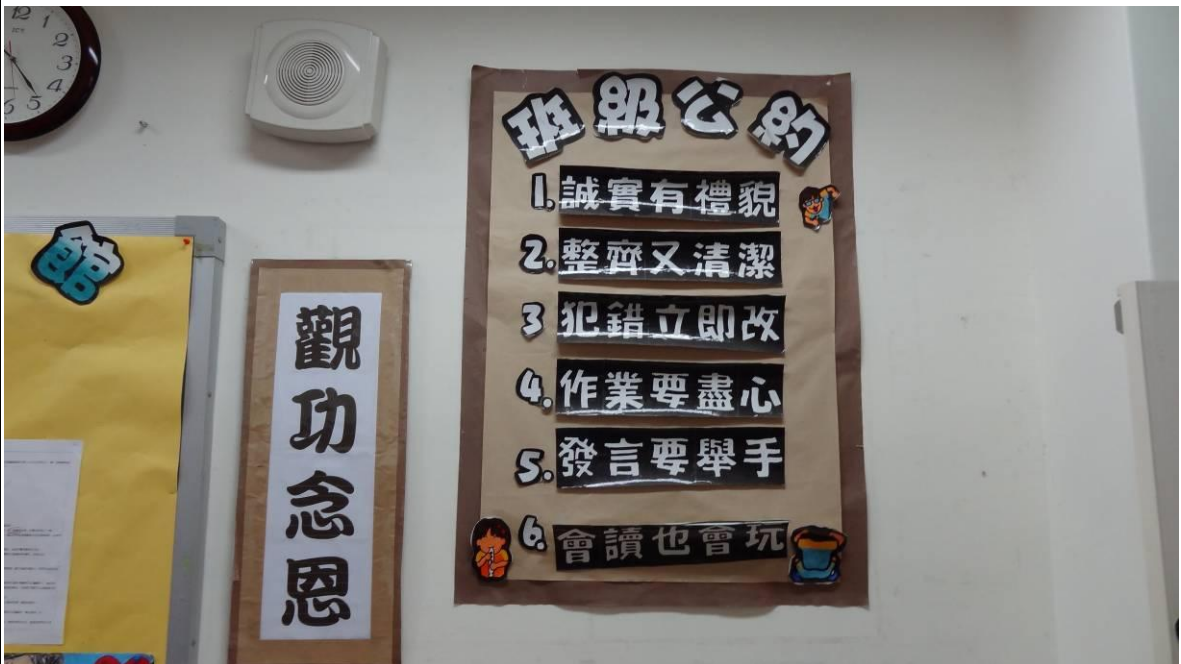 12
1
2
3
4
5
6
館
觀功念恩
班級公約
1.誠實有禮貌
2.整齊又清潔
3 犯錯立即改
4.作業要盡心
5.發言要舉手
6.會讀也會玩